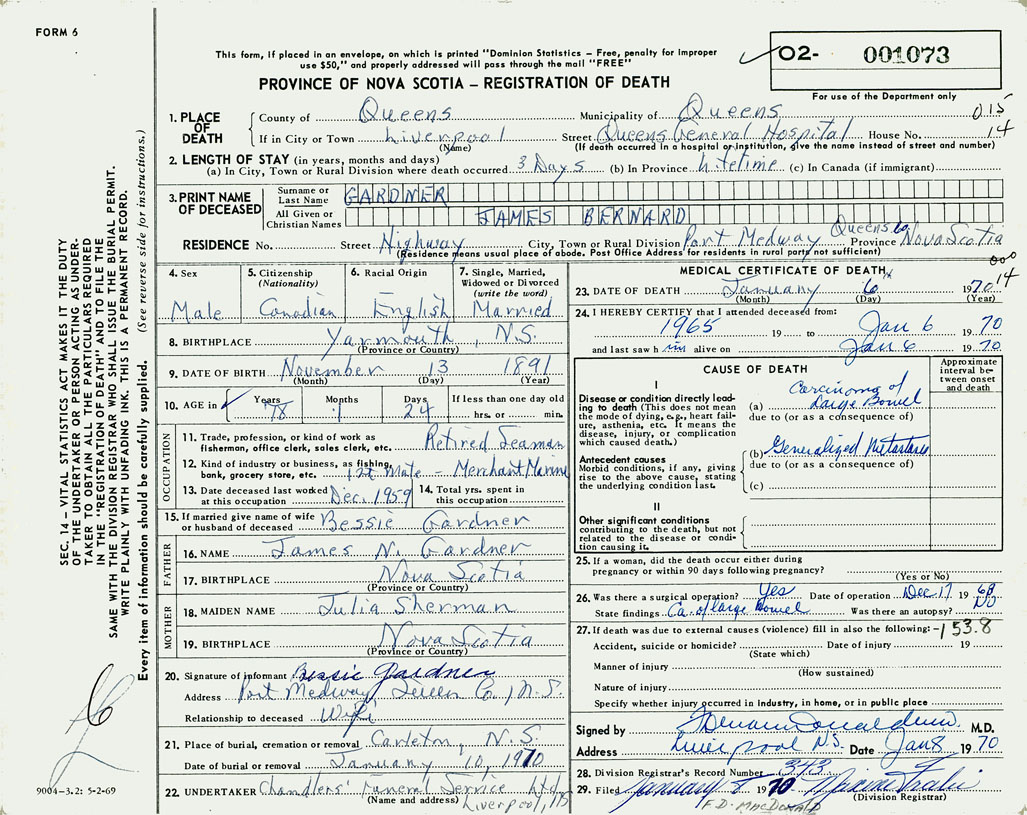 FORM 6
This form, if placed in an envelope, on which is printed "Dominion Statistics – Free, penalty for improper
use $50," and properly addressed will pass through the mail "FREE"
O2- 001073
For use of the Department only
PROVINCE OF NOVA SCOTIA – REGISTRATION OF DEATH
SEC. 14 – VITAL STATISTICS ACT MAKES IT THE DUTY
OF THE UNDERTAKER OR PERSON ACTING AS UNDER-
TAKER TO OBTAIN ALL THE PARTICULARS REQUIRED
IN THE "REGISTRATION OF DEATH" AND TO FILE THE
SAME WITH THE DIVISION REGISTRAR WHO SHALL ISSUE THE BURIAL PERMIT.
WRITE PLAINLY WITH UNFADING INK. THIS IS A PERMANENT RECORD.
Every item of information should be carefully supplied. (See reverse side for instructions.)
1. PLACE OF DEATH
County of Queens Municipality of Queens 015
If in City or Town Liverpool Street Queens General Hospital House No. 14
(Name) (If death occurred in a hospital or institution, give the name instead of street and number)
2. LENGTH OF STAY (in years, months and days)
(a) In City, Town or Rural Division where death occurred 3 Days (b) In Province Lifetime (c) In Canada (if immigrant)
3. PRINT NAME OF DECEASED
Surname or Last Name GARDNER
All Given or Christian Names JAMES BERNARD
Queens Co
RESIDENCE No. Street Highway City, Town or Rural Division Port Medway Province Nova Scotia
(Residence means usual place of abode. Post Office Address for residents in rural parts not sufficient)
000
14
4. Sex 5. Citizenship (Nationality) 6. Racial Origin 7. Single, Married, Widowed or Divorced (write the word)
Male Canadian English Married
8. BIRTHPLACE Yarmouth, N.S.
(Province or Country)
9. DATE OF BIRTH November 13 1891
(Month) (Day) (Year)
10. AGE in Years Months Days If less than one day old
78 1 24 hrs. or min.
OCCUPATION
11. Trade, profession, or kind of work as
fisherman, office clerk, sales clerk, etc. Retired Seaman
12. Kind of industry or business, as fishing,
bank, grocery store, etc. 1st Mate - Merchant Marine
13. Date deceased last worked at this occupation Dec. 1959 14. Total yrs. spent in this occupation
15. If married give name of wife
or husband of deceased Bessie Gardner
FATHER
16. NAME James N. Gardner
17. BIRTHPLACE Nova Scotia
(Province or Country)
MOTHER
18. MAIDEN NAME Julia Sherman
19. BIRTHPLACE Nova Scotia
(Province or Country)
20. Signature of informant Bessie Gardner
Address Port Medway Queen Co., N.S.
Relationship to deceased Wife
21. Place of burial, cremation or removal Carleton, N.S.
Date of burial or removal January 10, 1970
22. UNDERTAKER Chandlers' Funeral Service Ltd.
(Name and address) Liverpool, NS
9004-3.2: 5-2-69
MEDICAL CERTIFICATE OF DEATH
23. DATE OF DEATH January 6 1970
(Month) (Day) (Year)
24. I HEREBY CERTIFY that I attended deceased from:
1965 19 to Jan 6 1970
and last saw him alive on Jan 6 1970
CAUSE OF DEATH
Approximate interval between onset and death
I
Disease or condition directly lead-
ing to death (This does not mean
the mode of dying, e.g., heart fail-
ure, asthenia, etc. It means the
disease, injury, or complication
which caused death.)
(a) Carcinoma of Large Bowel
due to (or as a consequence of)
Antecedent causes
Morbid conditions, if any, giving
rise to the above cause, stating
the underlying condition last.
(b) Generalized Metastasis
due to (or as a consequence of)
(c)
II
Other significant conditions
contributing to the death, but not
related to the disease or condi-
tion causing it.
25. If a woman, did the death occur either during
pregnancy or within 90 days following pregnancy?
(Yes or No)
26. Was there a surgical operation? Yes Date of operation Dec 17 1968
State findings Ca. of large bowel Was there an autopsy? NO
27. If death was due to external causes (violence) fill in also the following: 153.8
Accident, suicide or homicide? Date of injury 19
(State which)
Manner of injury
(How sustained)
Nature of injury
Specify whether injury occurred in industry, in home, or in public place
Signed by M.D.
Address Liverpool N.S. Date Jan 8 1970
28. Division Registrar's Record Number 343
29. Filed January 8 1970
(Division Registrar)
F.D. MacDONALD